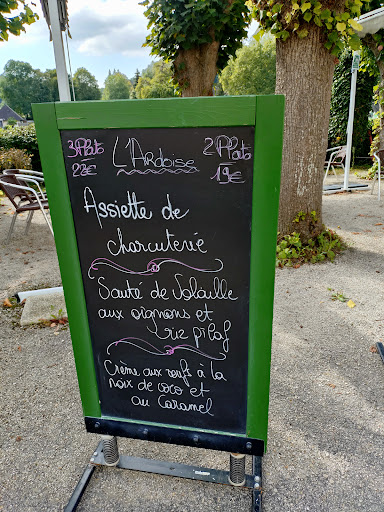 3 Plats L'Ardoise 2 Plats
22€ 19€
Assiette de
charcuterie
Sauté de Volaille
aux oignons et
riz pilaf
Crème aux oeufs à la
noix de coco et
au Caramel